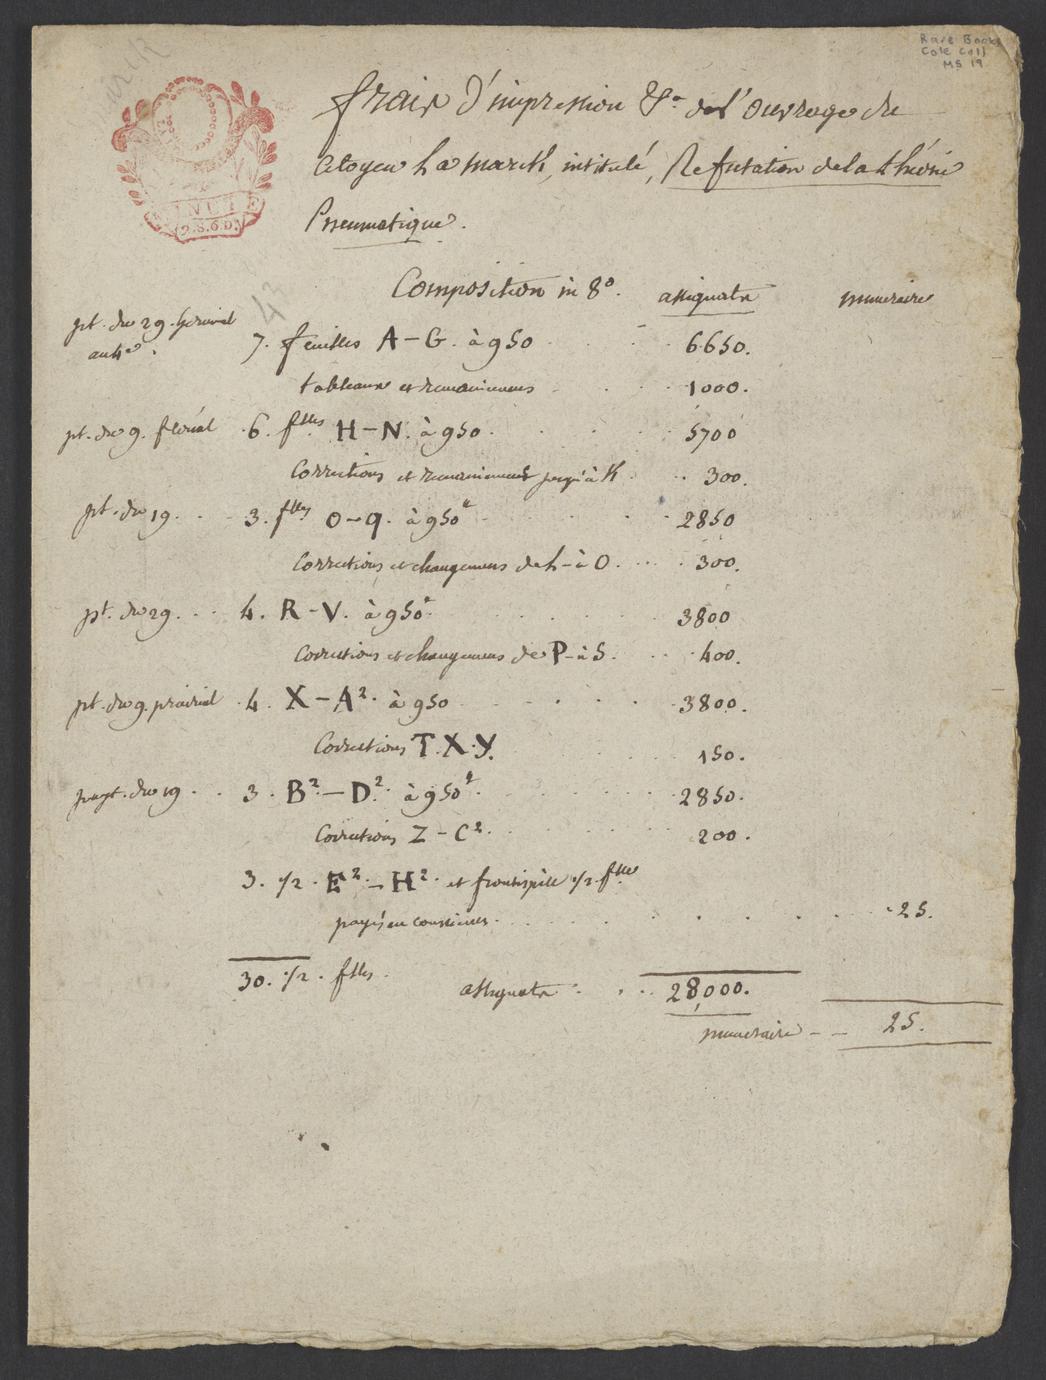 Rare Books
Cole Coll
MS 19
frais d'impression &a. de l'ouvrage du
Citoyen La Marck, intitulé, Refutation de la théorie
Pneumatique.
Composition in 8o. assignats numeraire
pt. du 29. germinal 7. feuilles A-G. à 950 6650.
tableaux et remaniemens 1000.
pt. du 9. floréal 6. flles H-N. à 950. 5700
Corrections et remaniemens jusqu'à K 300.
pt. du 19. 3. flles O-Q. à 950 2850
Corrections et changemens de L-à O. 300.
pt. du 29. 4. R-V. à 950 3800
Corrections et changemens de P-à S. 400.
pt. du 9. prairial 4. X-A2. à 950 3800.
Corrections T.X.Y. 150.
payt. du 19 3. B2.-D2. à 950. 2850.
Corrections Z-C2. 200.
3. 1/2. E2.-H2. et frontispice 1/2. flle
payés en 25.
30. 1/2. flles. assignats 28,000.
numeraire 25.